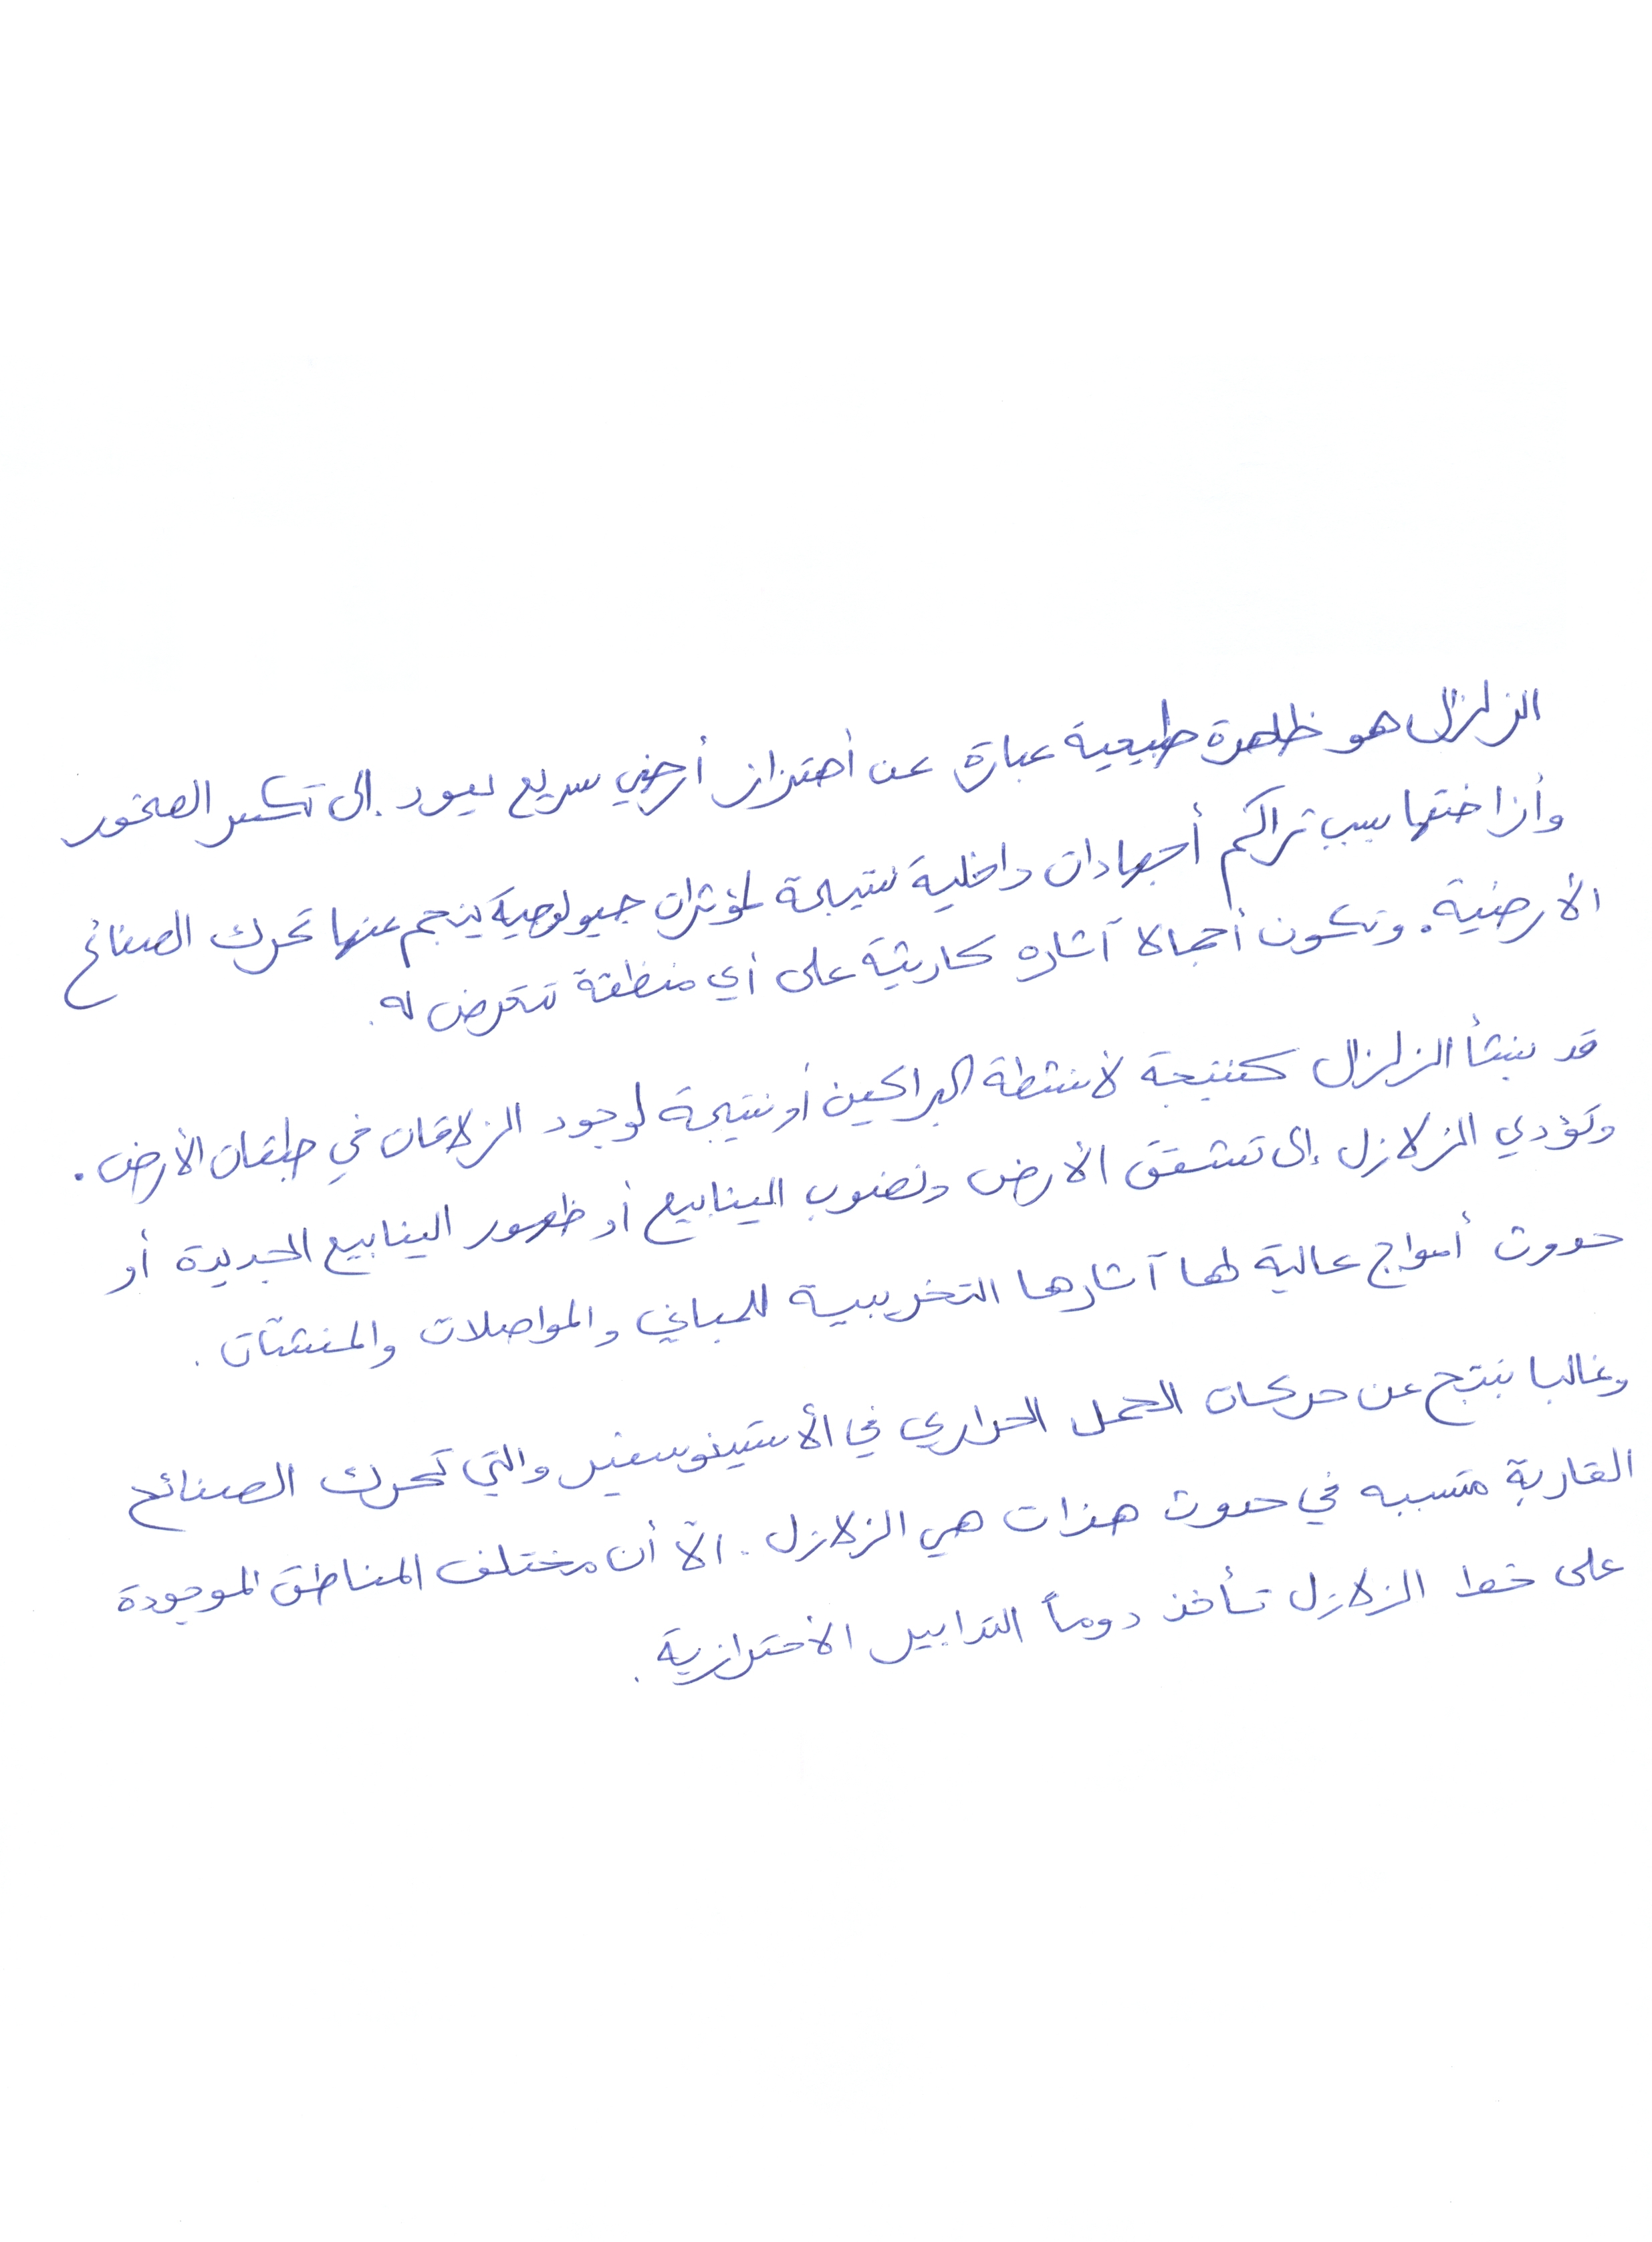 الزلزال هو ظاهرة طبيعية عبارة عن أهتزاز أرضي سريع يعود إلى تكسر الصخور
وأزاحتها بسبب تراكم أجهادات داخلية نتيجة لمؤثرات جيولوجية ينجم عنها تحرك الصفائح
الأرضية. وتكون أجمالا آثاره كارثية على أي منطقة تتعرض له.
قد ينشأ الزلزال كنتيجة لأنشطة البراكين أو نتيجة لوجود انزلاقات في طبقات الأرض.
وتؤدي الزلازل إلى تشقق الأرض ونضوب الينابيع أو ظهور الينابيع الجديدة أو
حدوث أمواج عالية لها آثارها التخريبية للمباني والمواصلات والمنشآت.
وغالبا ينتج عن حركات الحمل الحراري في الأستينوسفير والتي تحرك الصفائح
القارية متسببه في حدوث هزات هي الزلازل. الآ أن مختلف المناطق الموجودة
على خط الزلازل تأخذ دوماً التدابير الأحترازية.